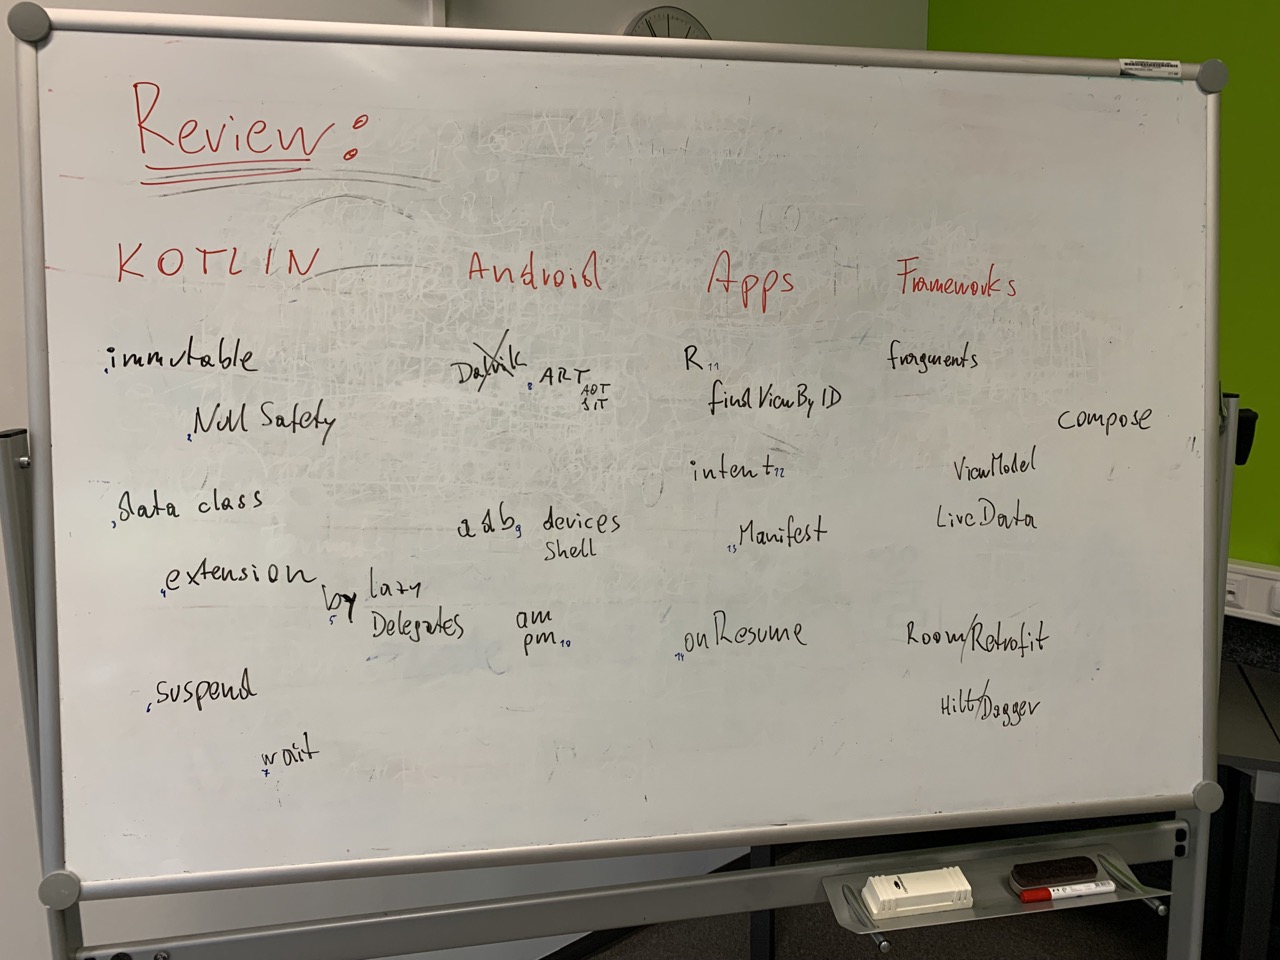 Review:
KOTLIN
1 immutable
2 Null Safety
3 data class
4 extension
5 by lazy
Delegates
6 suspend
7 wait
Android
Dalvik 8 ART
AOT
JIT
adb 9 devices
shell
am
pm 10
Apps
R 11
findViewByID
intent 12
13 Manifest
14 onResume
Frameworks
fragments
compose
ViewModel
LiveData
Room/Retrofit
Hilt/Dagger